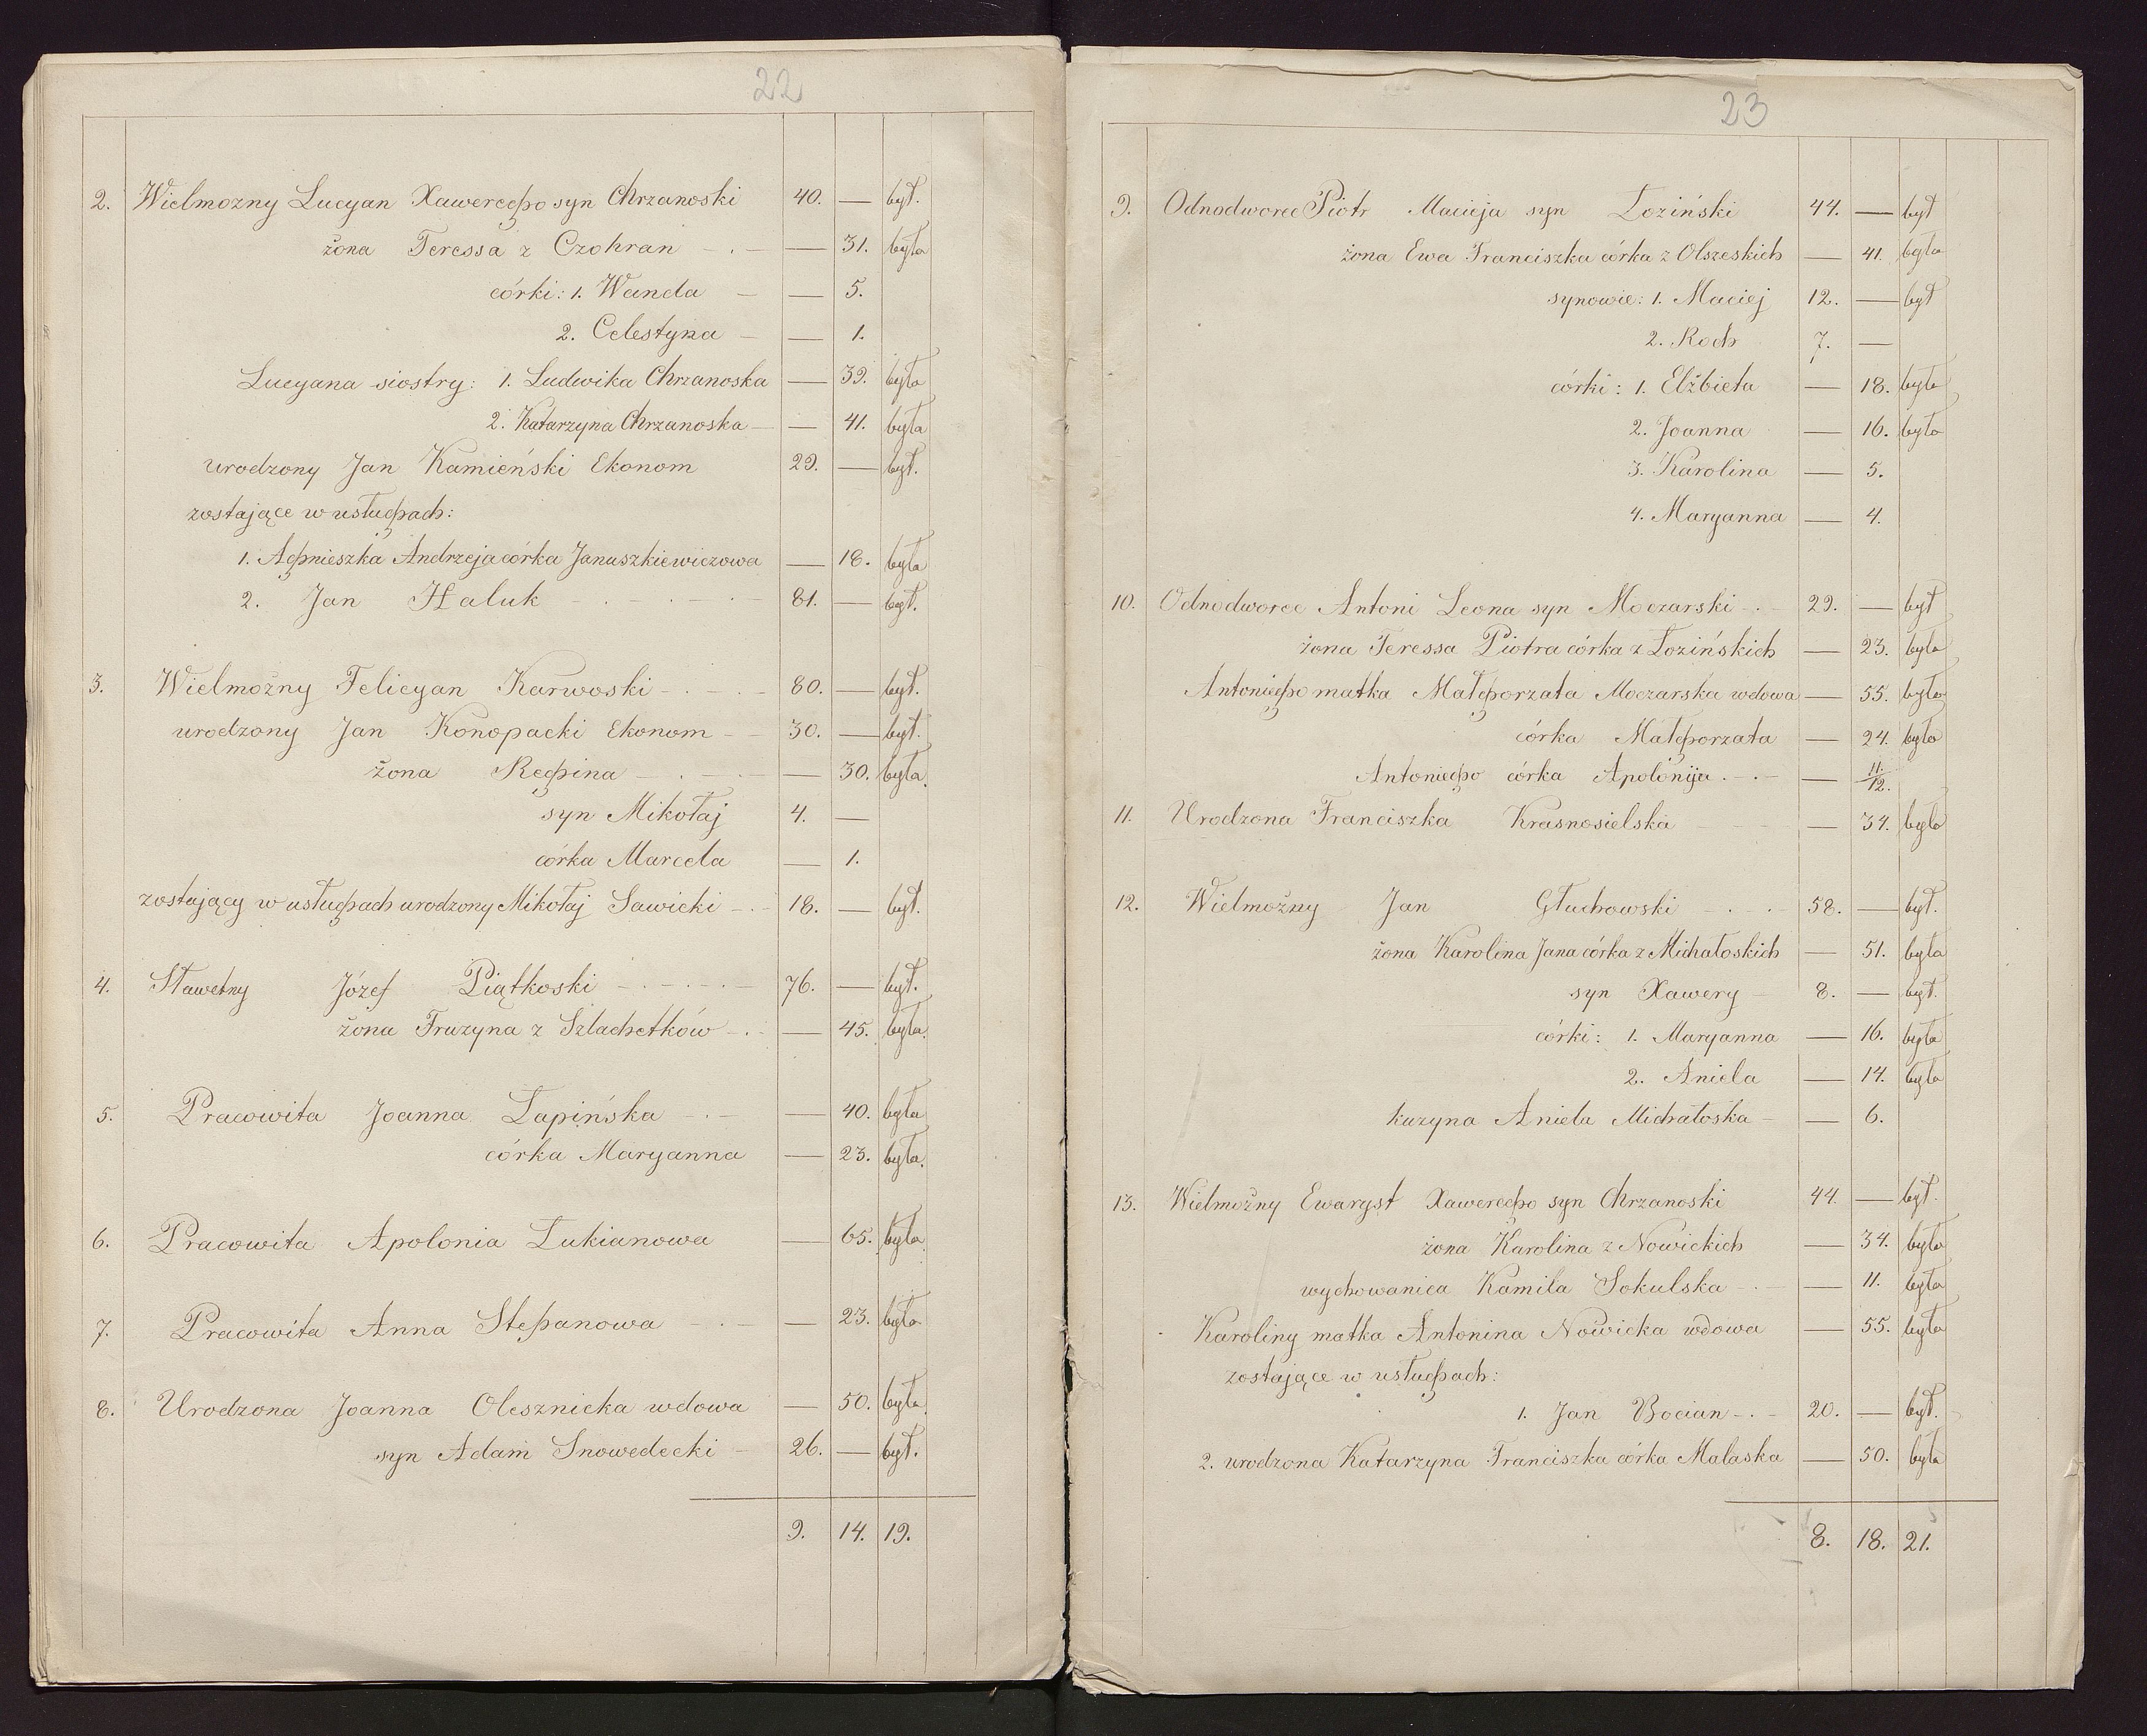 22
2. Wielmozny Lucyan Xawerego syn Chrzanoski 40. — był.
żona Teressa z Czohran — 31. była
córki: 1. Wanda — 5.
2. Celestyna — 1.
Lucyana siostry: 1. Ludwika Chrzanoska — 39. była
2. Katarzyna Chrzanoska — 41. była
urodzony Jan Kamieński Ekonom 29. — był.
zostające w usługach:
1. Agnieszka Andrzeja córka Januszkiewiczowa — 18. była
2. Jan Haluk 81. — był.
3. Wielmożny Felicyan Karwoski 80. — był.
urodzony Jan Konopacki Ekonom 30. — był.
żona Regina — 30. była.
syn Mikołaj 4. —
córka Marcela — 1.
zostający w usługach urodzony Mikołaj Sawicki 18. — był.
4. Sławetny Józef Piątkoski 76. — był.
żona Fruzyna z Szlachetków — 45. była.
5. Pracowita Joanna Łapińska — 40. była
córka Maryanna — 23. była.
6. Pracowita Apolonia Łukianowa — 65. była.
7. Pracowita Anna Stepanowa — 23. była
8. Urodzona Joanna Olesznicka wdowa — 50. była.
syn Adam Snowedecki 26. — był.
9. 14. 19.
23
9. Odnodworec Piotr Macieja syn Łoziński 44. — był
żona Ewa Franciszka córka z Olszeskich — 41. była
synowie: 1. Maciej 12. — był
2. Roch 7. —
córki: 1. Elżbieta — 18. była
2. Joanna — 16. była
3. Karolina — 5.
4. Maryanna — 4.
10. Odnodworec Antoni Leona syn Moczarski 29. — był
żona Teressa Piotra córka z Łozińskich — 23. była
Antoniego matka Małgorzata Moczarska wdowa — 55. była
córka Małgorzata — 24. była
Antoniego córka Apolonija — 11/12.
11. Urodzona Franciszka Krasnosielska — 34. była
12. Wielmożny Jan Głuchowski 58. — był.
żona Karolina Jana córka z Michałoskich — 51. była
syn Xawery 8. — był.
córki: 1. Maryanna — 16. była
2. Aniela — 14. była
kuzyna Aniela Michałoska — 6.
13. Wielmożny Ewaryst Xawerego syn Chrzanoski 44. — był.
żona Karolina z Nowickich — 34. była
wychowanica Kamila Sokulska — 11. była
Karoliny matka Antonina Nowicka wdowa — 55. była
zostające w usługach:
1. Jan Bocian 20. — był.
2. urodzona Katarzyna Franciszka córka Malaska — 50. była
8. 18. 21.